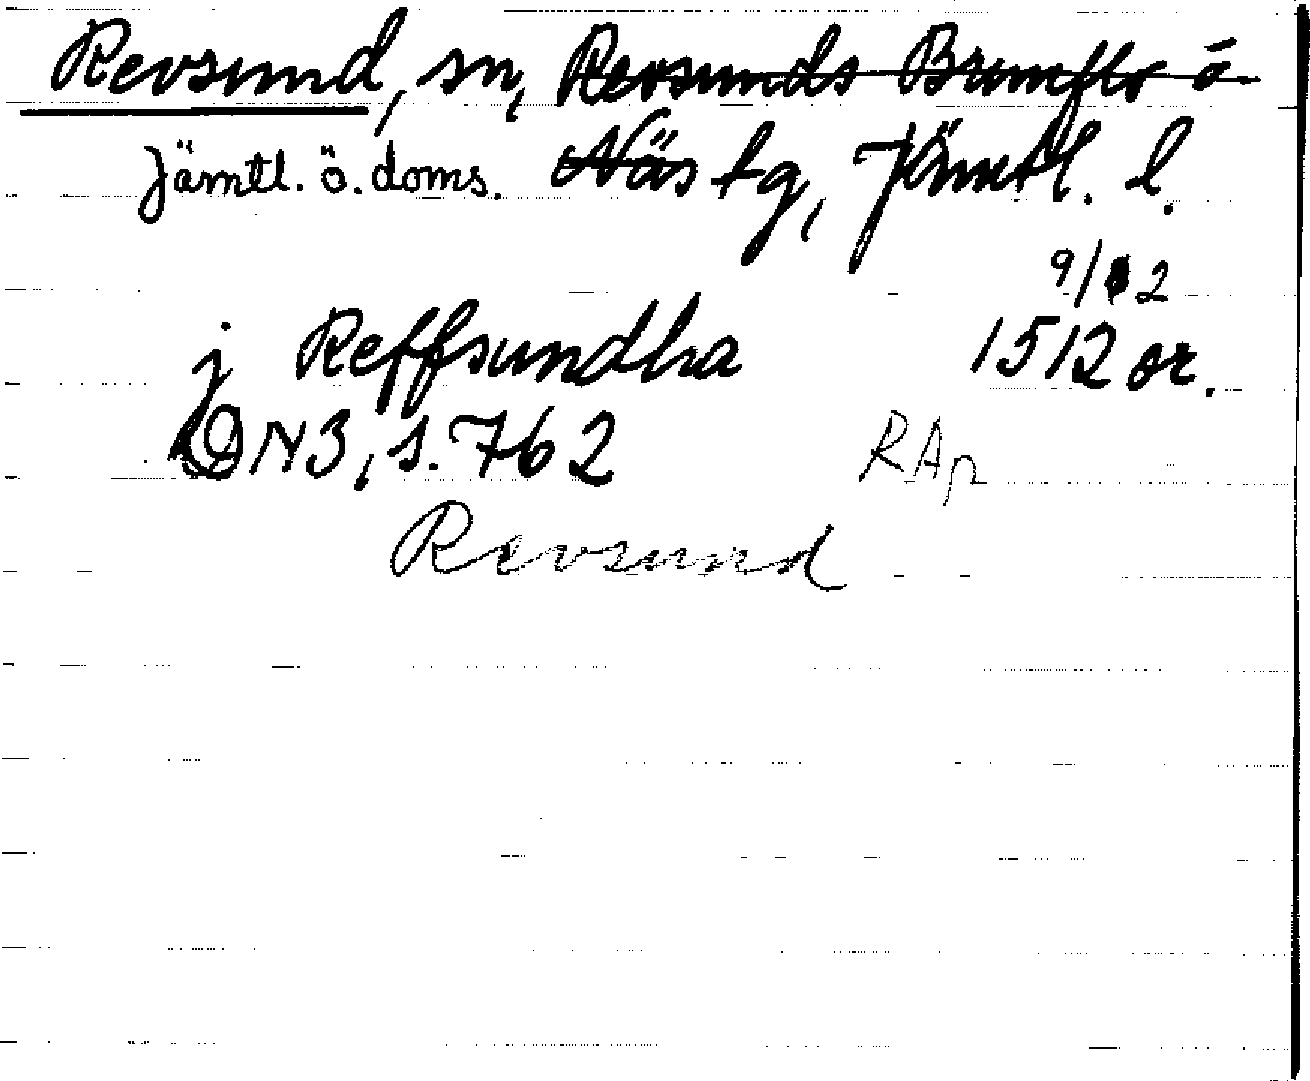 Revsund, sn, Revsunds Brunflo o
Jämtl. ö. doms. Näs tg, Jämtl. l.
9/2
j Reffsundha 1512 or.
DN3, s. 762 RAp
Revsund